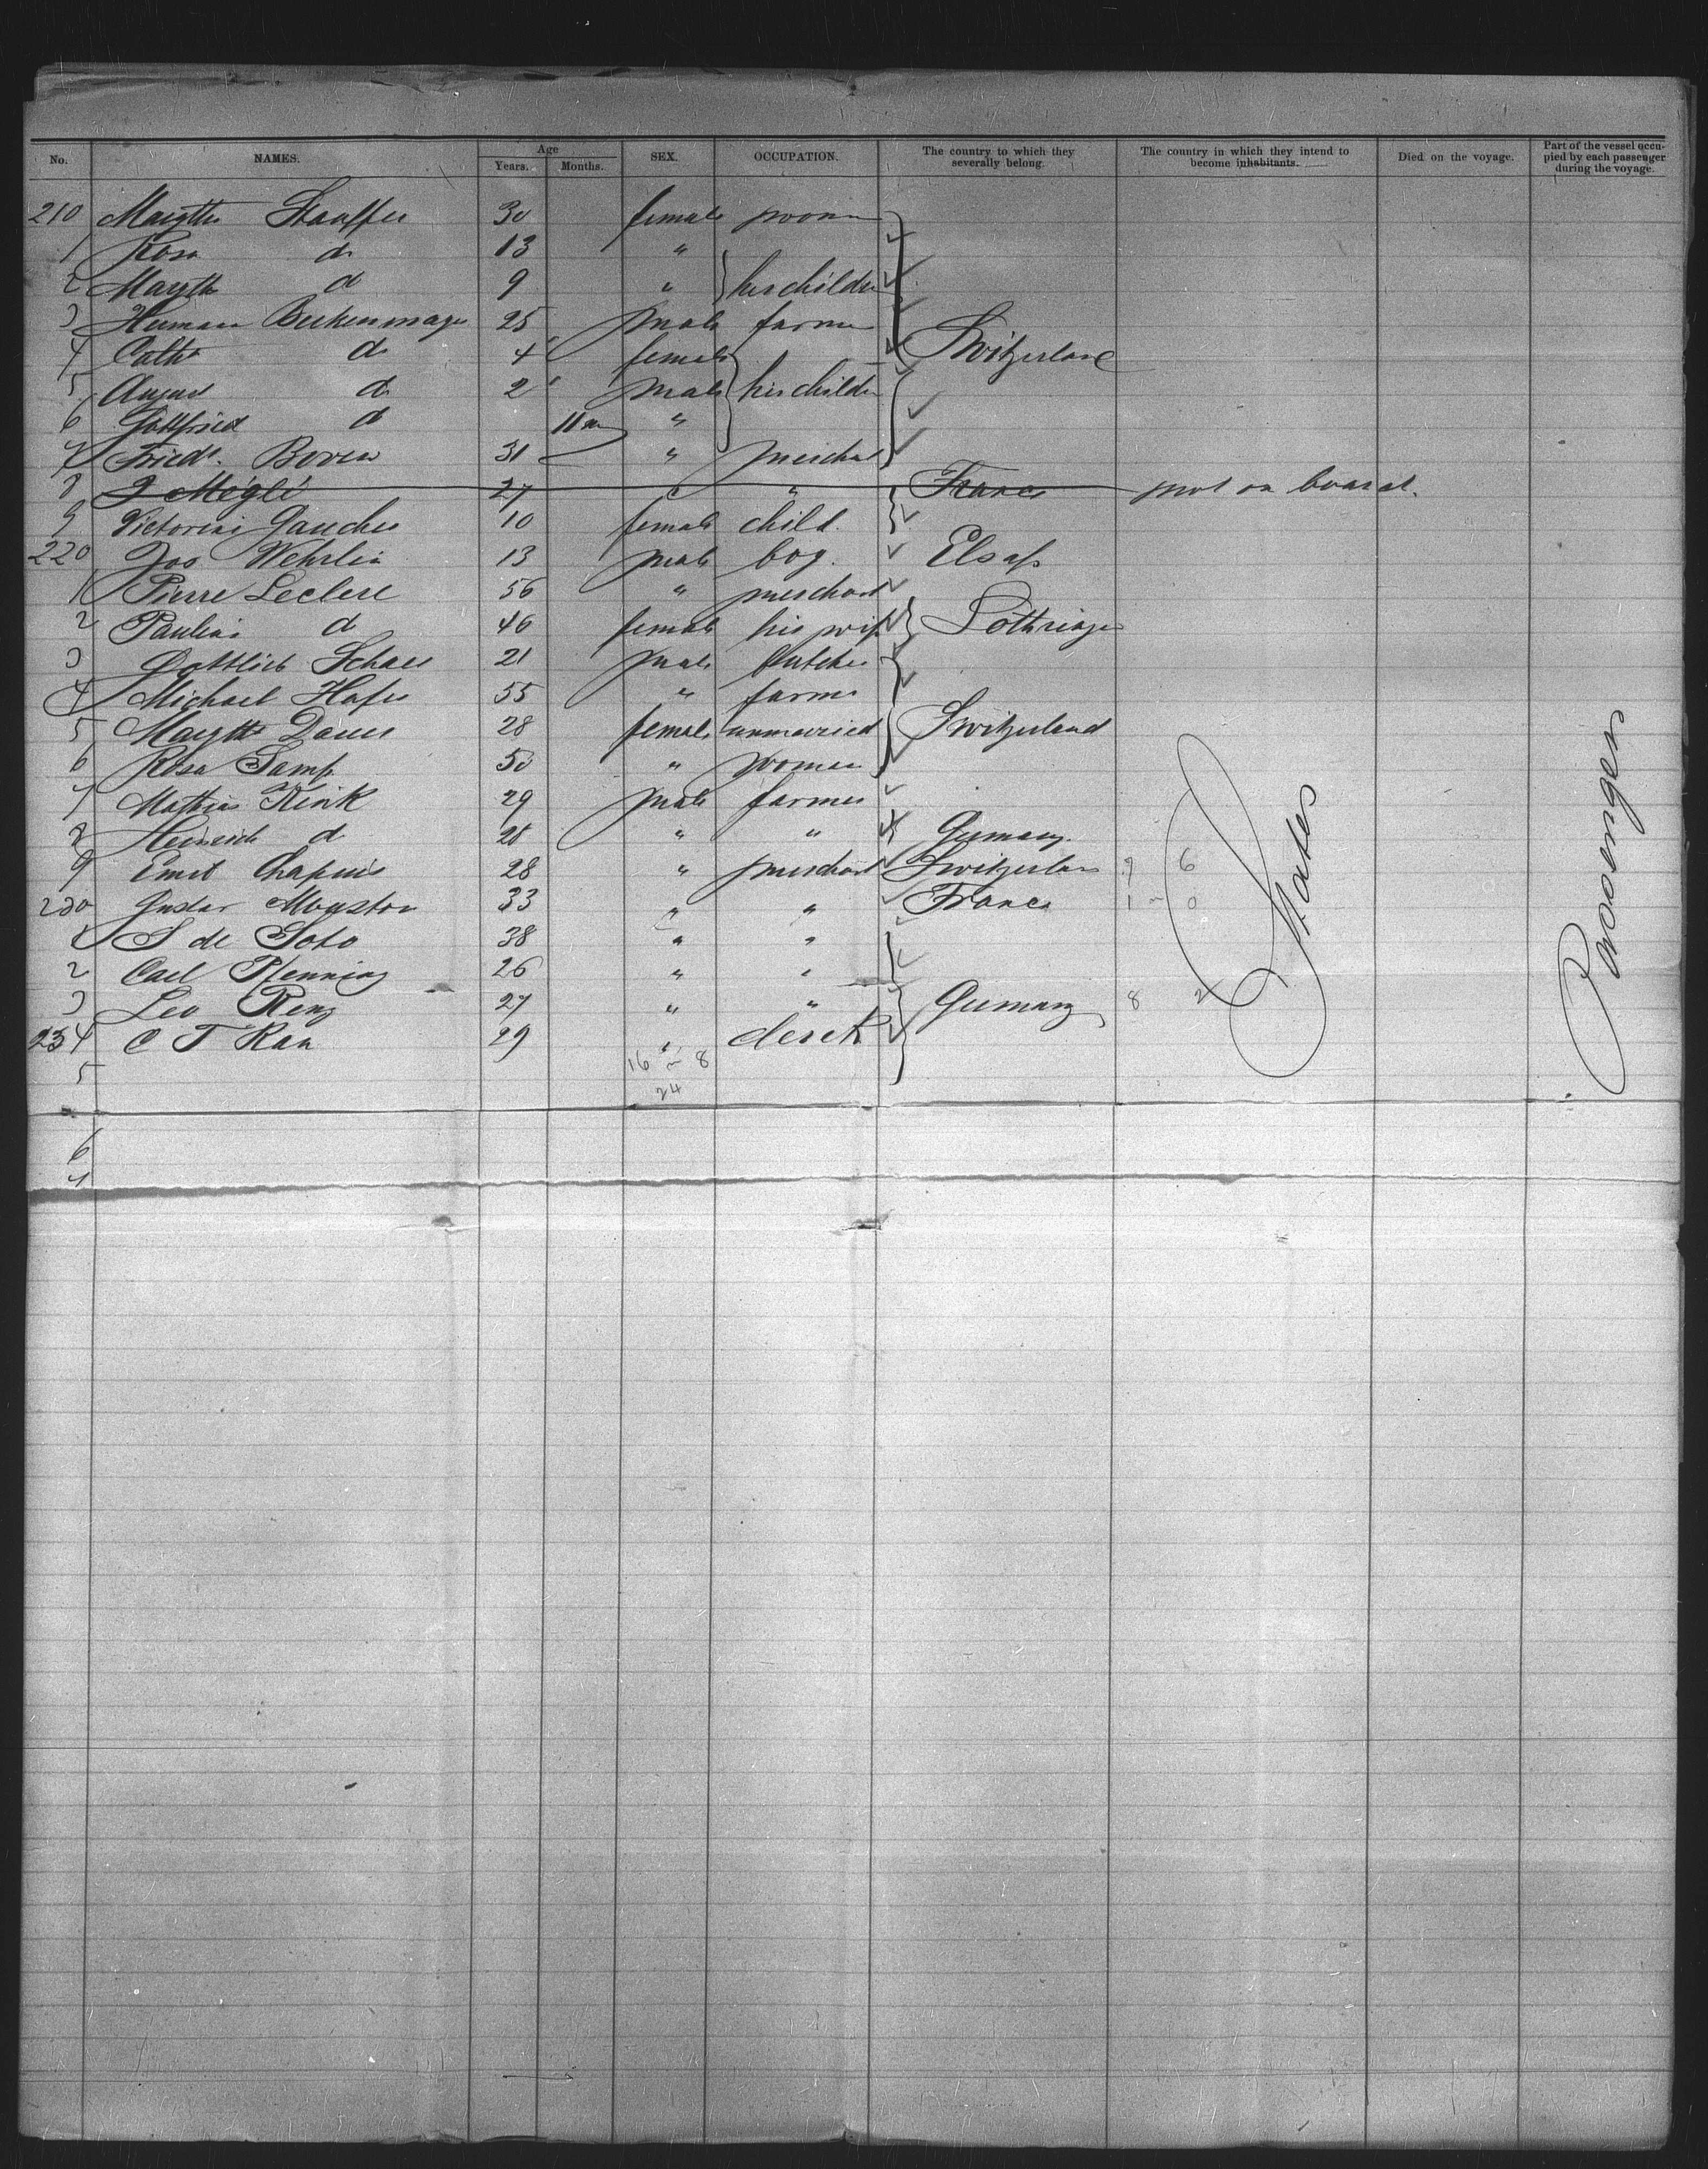 No. NAMES. Age Years. Months. SEX. OCCUPATION. The country to which they severally belong. The country in which they intend to become inhabitants. Died on the voyage. Part of the vessel occupied by each passenger during the voyage.
210 Margth Stauffer 30 female woman
1 Rosa do 13 "
2 Margth do 9 " her children
3 Herman Beckenmager 25 male farmer
4 Cath do 4 female Switzerland
5 August do 2 male his children
6 Gottfried do 11 m "
7 Friedr. Boven 31 " merchant
8 J Megle 27 " " France not on board.
9 Victorin Gaucher 10 female child.
220 Jos Wehrlin 13 male boy. Elsass
1 Pierre Leclerc 56 " merchant
2 Paulini do 46 female his wife Lothringen
3 Gottlieb Schaer 21 male butcher
4 Michael Hafer 55 " farmer
5 Margth Dauer 28 female unmarried Switzerland
6 Rosa Samp 50 " woman
7 Mathias Kink 29 male farmer
8 Heinrich do 28 " " Germany.
9 Emil Chapuis 28 " merchant Switzerland 9 6
230 Gustav 33 " " France 1 - 0
1 S de Soto 38 " "
2 Carl Pfenning 26 " "
3 Leo Renz 27 " " Germany 8 2
234 C T Rau 29 " clerk
5 16 ~ 8
24
6
7
States
Passengers